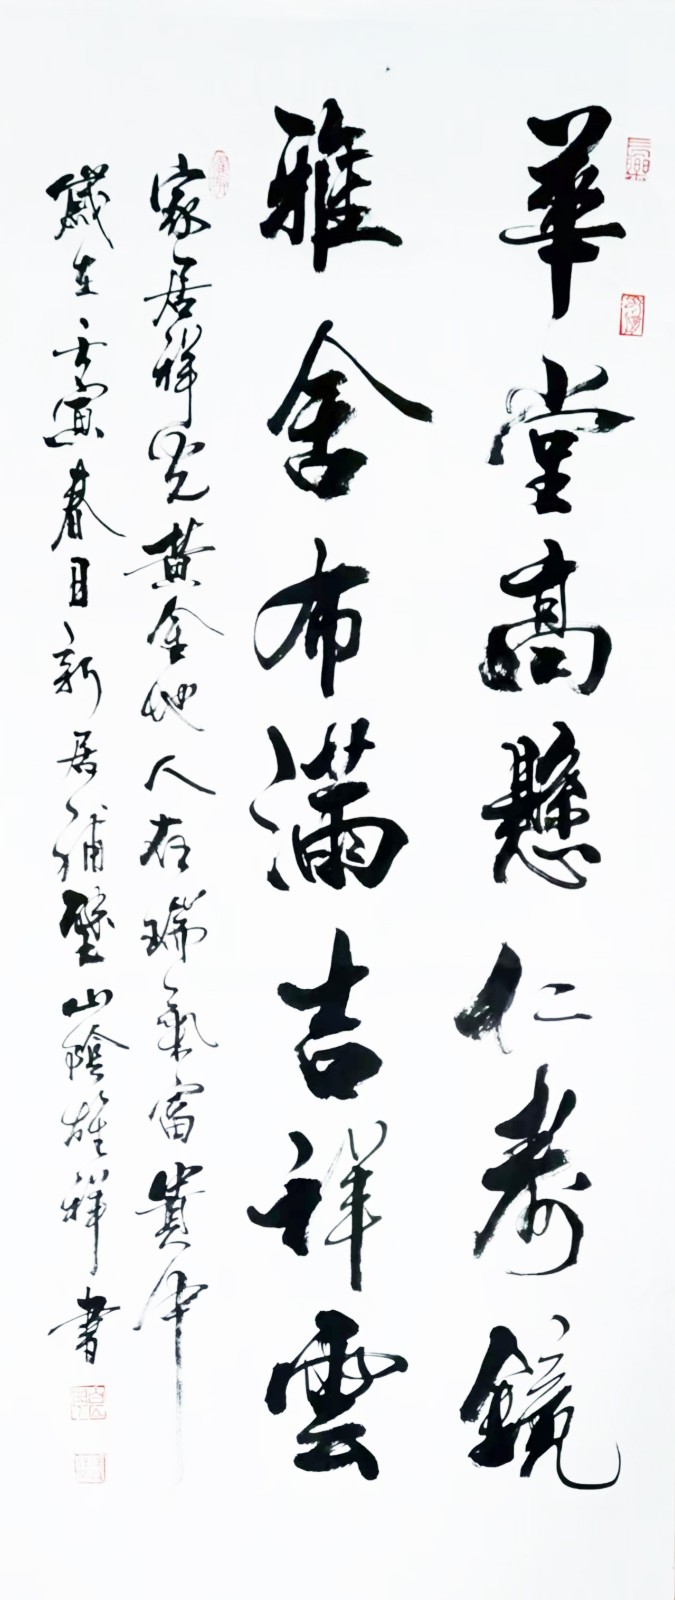 華堂高懸仁壽鏡
雅舍布滿吉祥雲
家居祥光黃金地人在瑞氣富貴中
歲在壬寅春月新居補壁山陰雄祥書
長樂